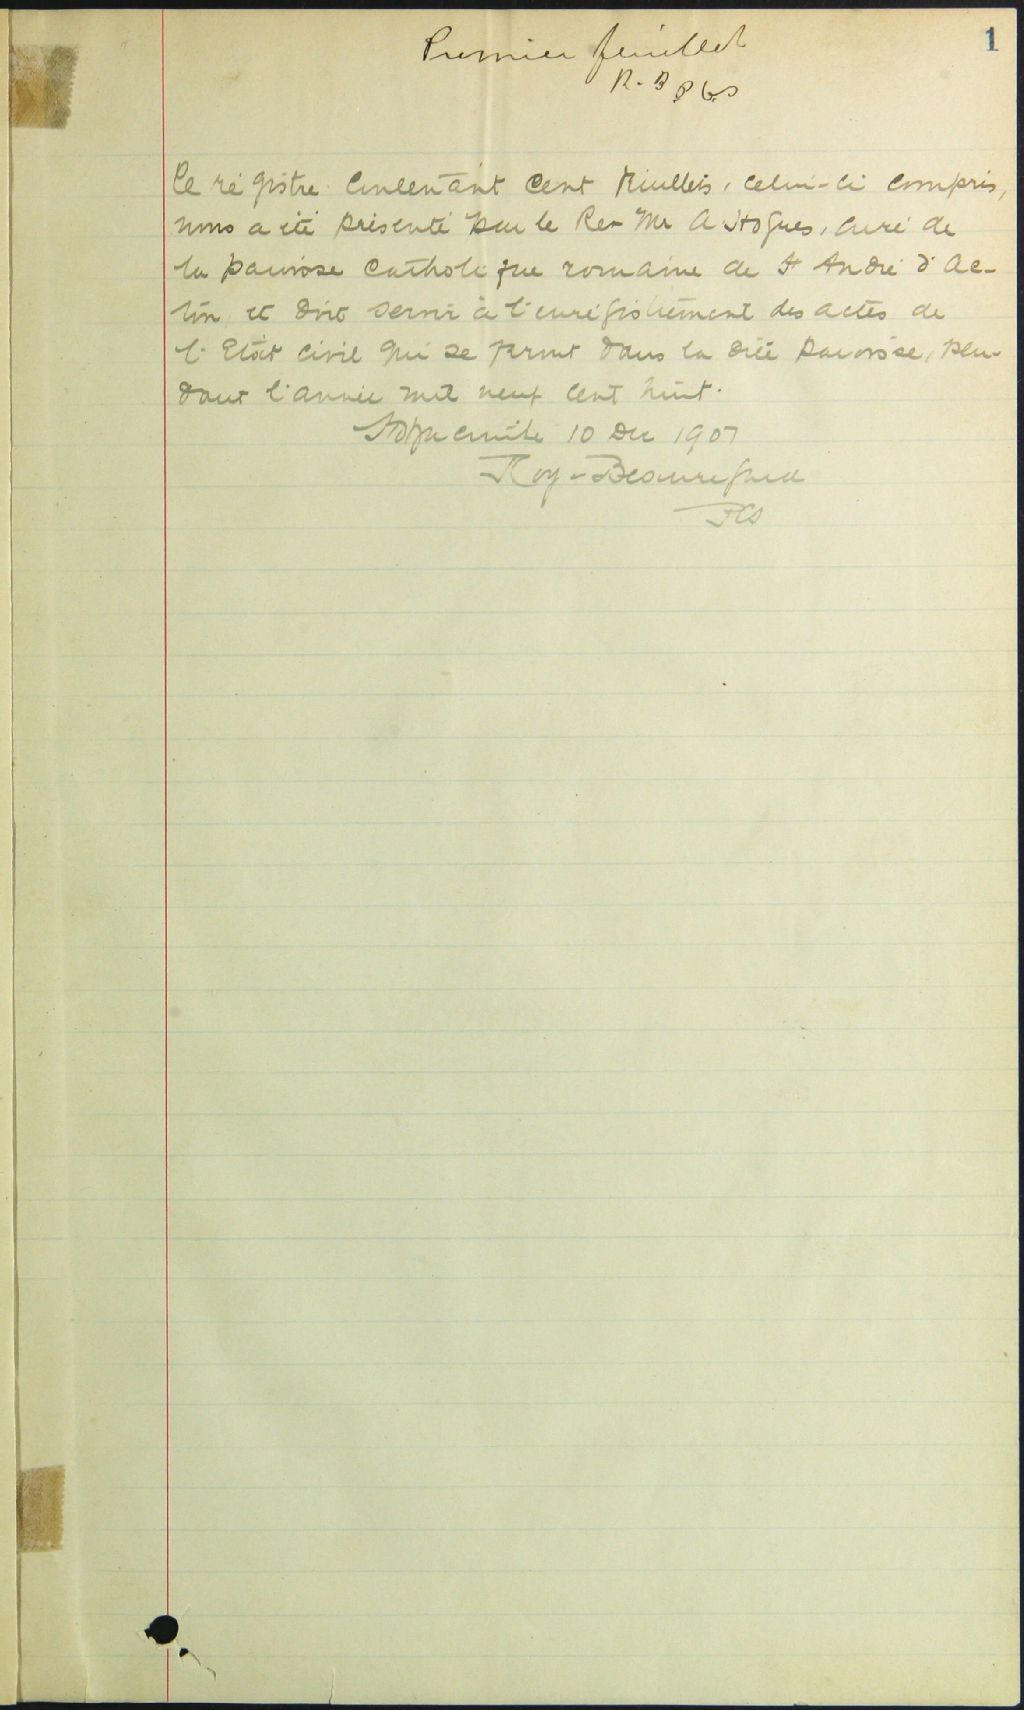 1
Premier feuillet
R-B PCS
Ce régistre contenant cent feuillets, celui-ci compris,
nous a été présenté par le Rev Mr A Hogues, curé de
la paroisse catholique romaine de St André d'Ac-
ton, et doit servir à l'enrégistrement des actes de
l'Etat civil qui se feront dans la dite paroisse, pen-
dant l'année mil neuf cent huit.
St Hyacinthe 10 Dec 1907
Roy-Beauregard
PCS